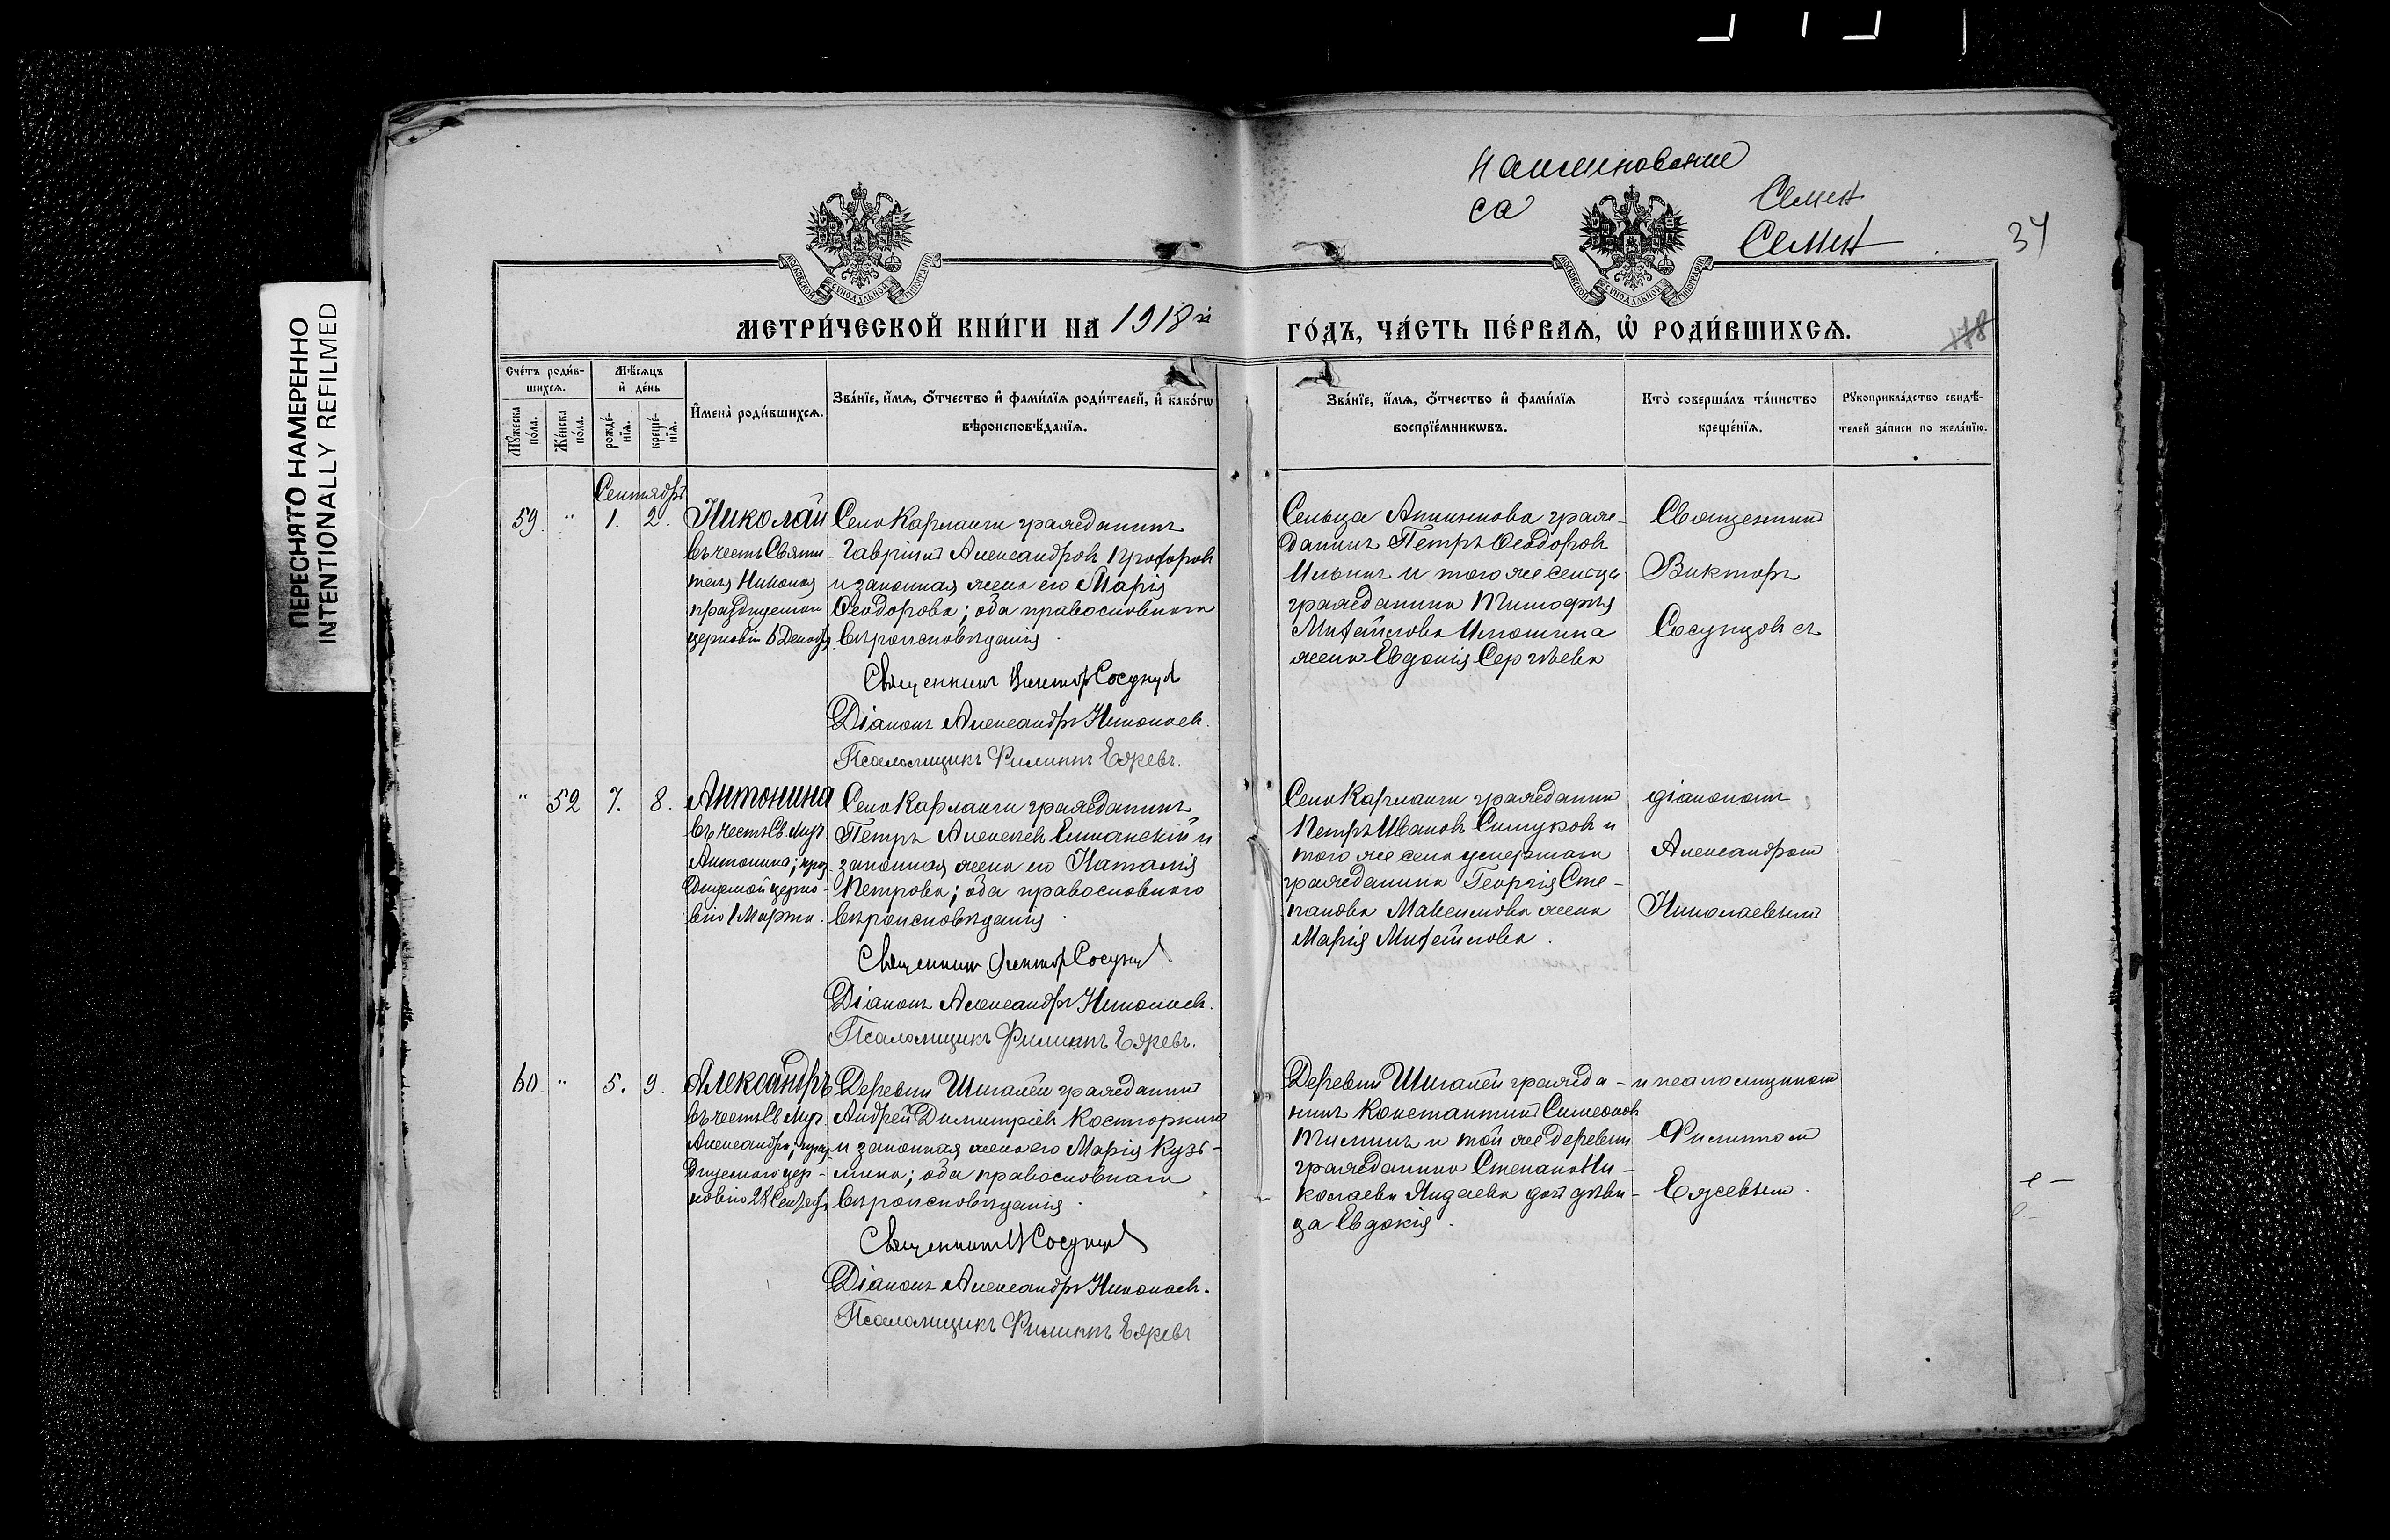 Наименование
са
Семен
Семен
34
178
ПЕРЕСНЯТО НАМЕРЕННО
INTENTIONALLY REFILMED
МОСКОВСКОЙ СѴНОДАЛЬНОЙ ТИПОГРАФІИ
МОСКОВСКОЙ СѴНОДАЛЬНОЙ ТИПОГРАФІИ
МЕТРИ́ЧЕСКОЙ КНИ́ГИ НА 1918й
ГО́ДЪ, ЧА́СТЬ ПЕ́РВАѦ, Ѡ҆ РОДИ́ВШИХСѦ.
Сче́тъ роди́в-
шихсѧ.
Мѣ́сѧцъ
и҆ де́нь
Мꙋ́жеска
по́ла.
Же́нска
по́ла.
рожде́-
нїѧ.
креще́-
нїѧ.
И҆мена̀ роди́вшихсѧ.
Зва́нїе, и҆́мѧ, ѻ҆́тчество и҆ фамі́лїѧ роди́телей, и҆ како́гѡ
вѣроисповѣ́данїѧ.
Зва́нїе, и҆́мѧ, ѻ҆́тчество и҆ фамі́лїѧ
воспрїе́мникѡвъ.
Кто̀ соверша́лъ та́инство
креще́нїѧ.
Рꙋкоприкла́дство свидѣ́-
телей за́писи по жела́нїю.
Сентябрь
59. " 1. 2.
Николай
въ честь Святи-
теля Николая
празднуемаго
церковію 6 Декабря
Село Карланги гражданинъ
Гавріилъ Александровъ Прохоровъ
и законная жена его Марія
Ѳеодорова; оба православнаго
вѣроисповѣданія.
Священникъ Викторъ Сосунцовъ
Діаконъ Александръ Николаевъ.
Псаломщикъ Филиппъ Еяревъ.
Сельца Апникова граж-
данинъ Петръ Ѳеодоровъ
Ильинъ и того же сельца
гражданина Тимофея
Михайлова Илюшина
жена Евдокія Сергѣева
Священник
Викторъ
Сосунцовъ съ
" 52 7. 8.
Антонина
въ честь Св. муч.
Антонина; праз-
днуемой церко-
вію 1 Марта.
Село Карланги гражданинъ
Петръ Алексѣевъ Ешманскій и
законная жена его Наталія
Петрова; оба православнаго
вѣроисповѣданія.
Священникъ Викторъ Сосунцовъ
Діаконъ Александръ Николаевъ.
Псаломщикъ Филиппъ Еяревъ.
Село Карланги гражданинъ
Петръ Ивановъ Симуковъ и
того же села умершаго
гражданина Георгія Сте-
панова Максимова жена
Марія Михайлова.
діакономъ
Александромъ
Николаевымъ
60. " 5. 9.
Александръ
въ честь Св. муч.
Александра; праз-
днуемаго цер-
ковію 28 Сентября
Деревни Шигалей гражданинъ
Андрей Димитріевъ Косторкинъ
и законная жена его Марія Кузь-
мина; оба православнаго
вѣроисповѣданія.
Священникъ В Сосунцовъ
Діаконъ Александръ Николаевъ.
Псаломщикъ Филиппъ Еяревъ
Деревни Шигалей гражда-
нинъ Константинъ Симеоновъ
Тилинъ и той же деревни
гражданина Степана Ни-
колаева Яндаева дочь дѣви-
ца Евдокія.
и псаломщикомъ
Филиппом